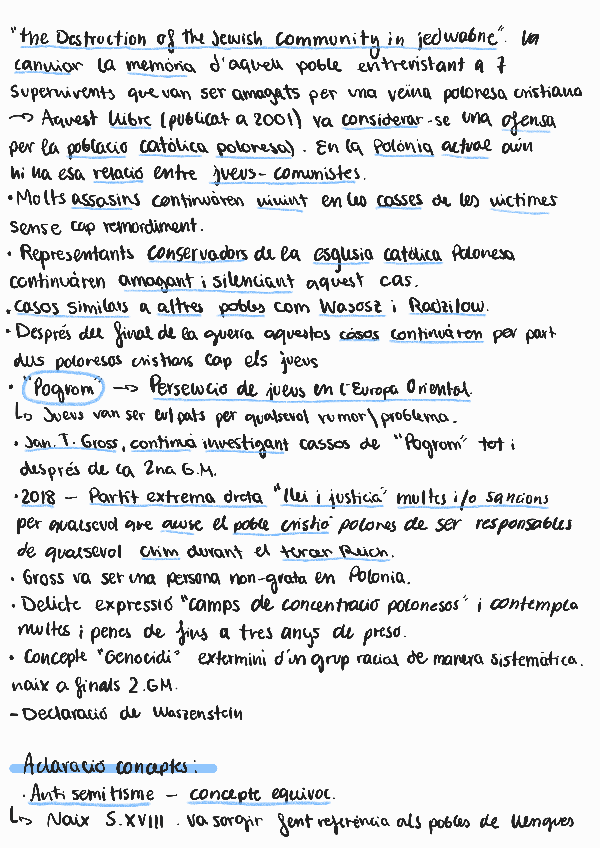 "the Destruction of the Jewish Community in jedwabne". Va
canviar la memòria d'aquell poble entrevistant a 7
Supervivents que van ser amagats per una veïna polonesa cristiana
→ Aquest llibre (publicat a 2001) va considerar-se una ofensa
per la població catòlica polonesa). En la Polònia actual aún
hi ha esa relació entre jueus-comunistes.
• Molts assasins continuàren vivint en les casses de les víctimes
sense cap remordiment.
• Representants conservadors de la esglusia catòlica Polonesa
continuàren amagant i silenciant aquest cas.
• casos similars a altres pobles com Wasosz i Radzilow.
• Després del final de la guerra aquestos casos continuàren per part
dels polonesos cristians cap els jueus
• "Pogrom" → Persecució de jueus en l'Europa Oriental.
↳ Jueus van ser culpats per qualsevol rumor\problema.
• Jan. T. Gross, continuà investigant cassos de "Pogrom" tot i
després de la 2na G.M.
• 2018 – Partit extrema dreta "llei i justicia" multes i/o sancions
per qualsevol que acuse el poble cristià polones de ser responsables
de qualsevol crim durant el tercer Reich.
• Gross va ser una persona non-grata en Polonia.
• Delicte expressió "camps de concentració polonesos" i contempla
multes i penes de fins a tres anys de presó.
• Concepte "Genocidi" extermini d'un grup racial de manera sistemàtica.
naix a finals 2.GM.
- Declaració de Waszenstein

Aclaració conceptes:
• Anti semitisme – concepte equivoc.
↳ Naix S.XVIII. va sorgir fent referència als pobles de llengues